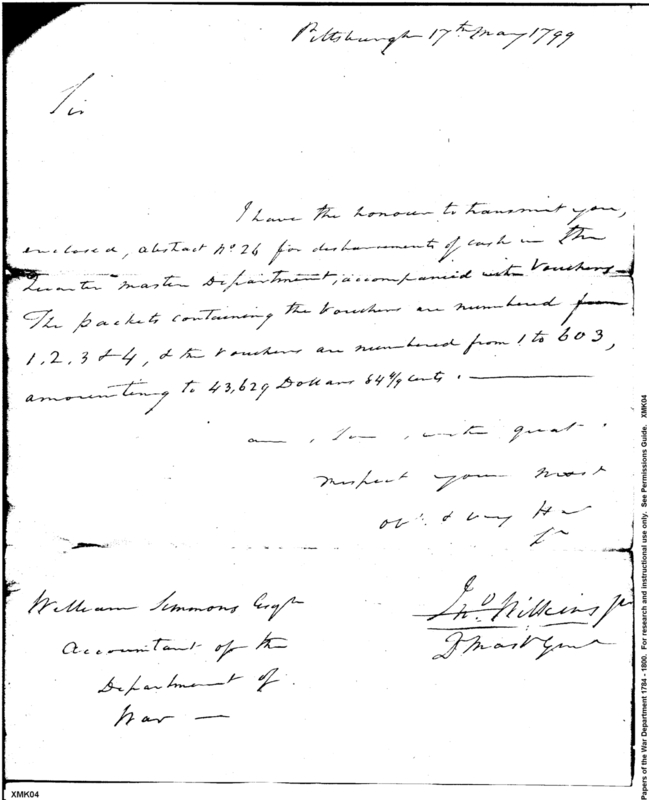 Pittsburgh 17th May 1799
Sir
I have the honour to transmit you,
enclosed, abstract No. 26 for disbursements of cash in the
Quarter master Department, accompanied with Vouchers
The packets containing the Vouchers are numbered from
1. 2. 3 & 4, & the Vouchers are numbered from 1 to 603,
amounting to 43,629 Dollars 84 cents.
am, Sir, with great
respect your most
Obt. & very Hu
Sr
William Simmons Esqr
Accountant of the
Department of
War
Jno Wilkins jr
Papers of the War Department 1784 - 1800. For research and instructional use only. See Permissions Guide. XMK04
XMK04